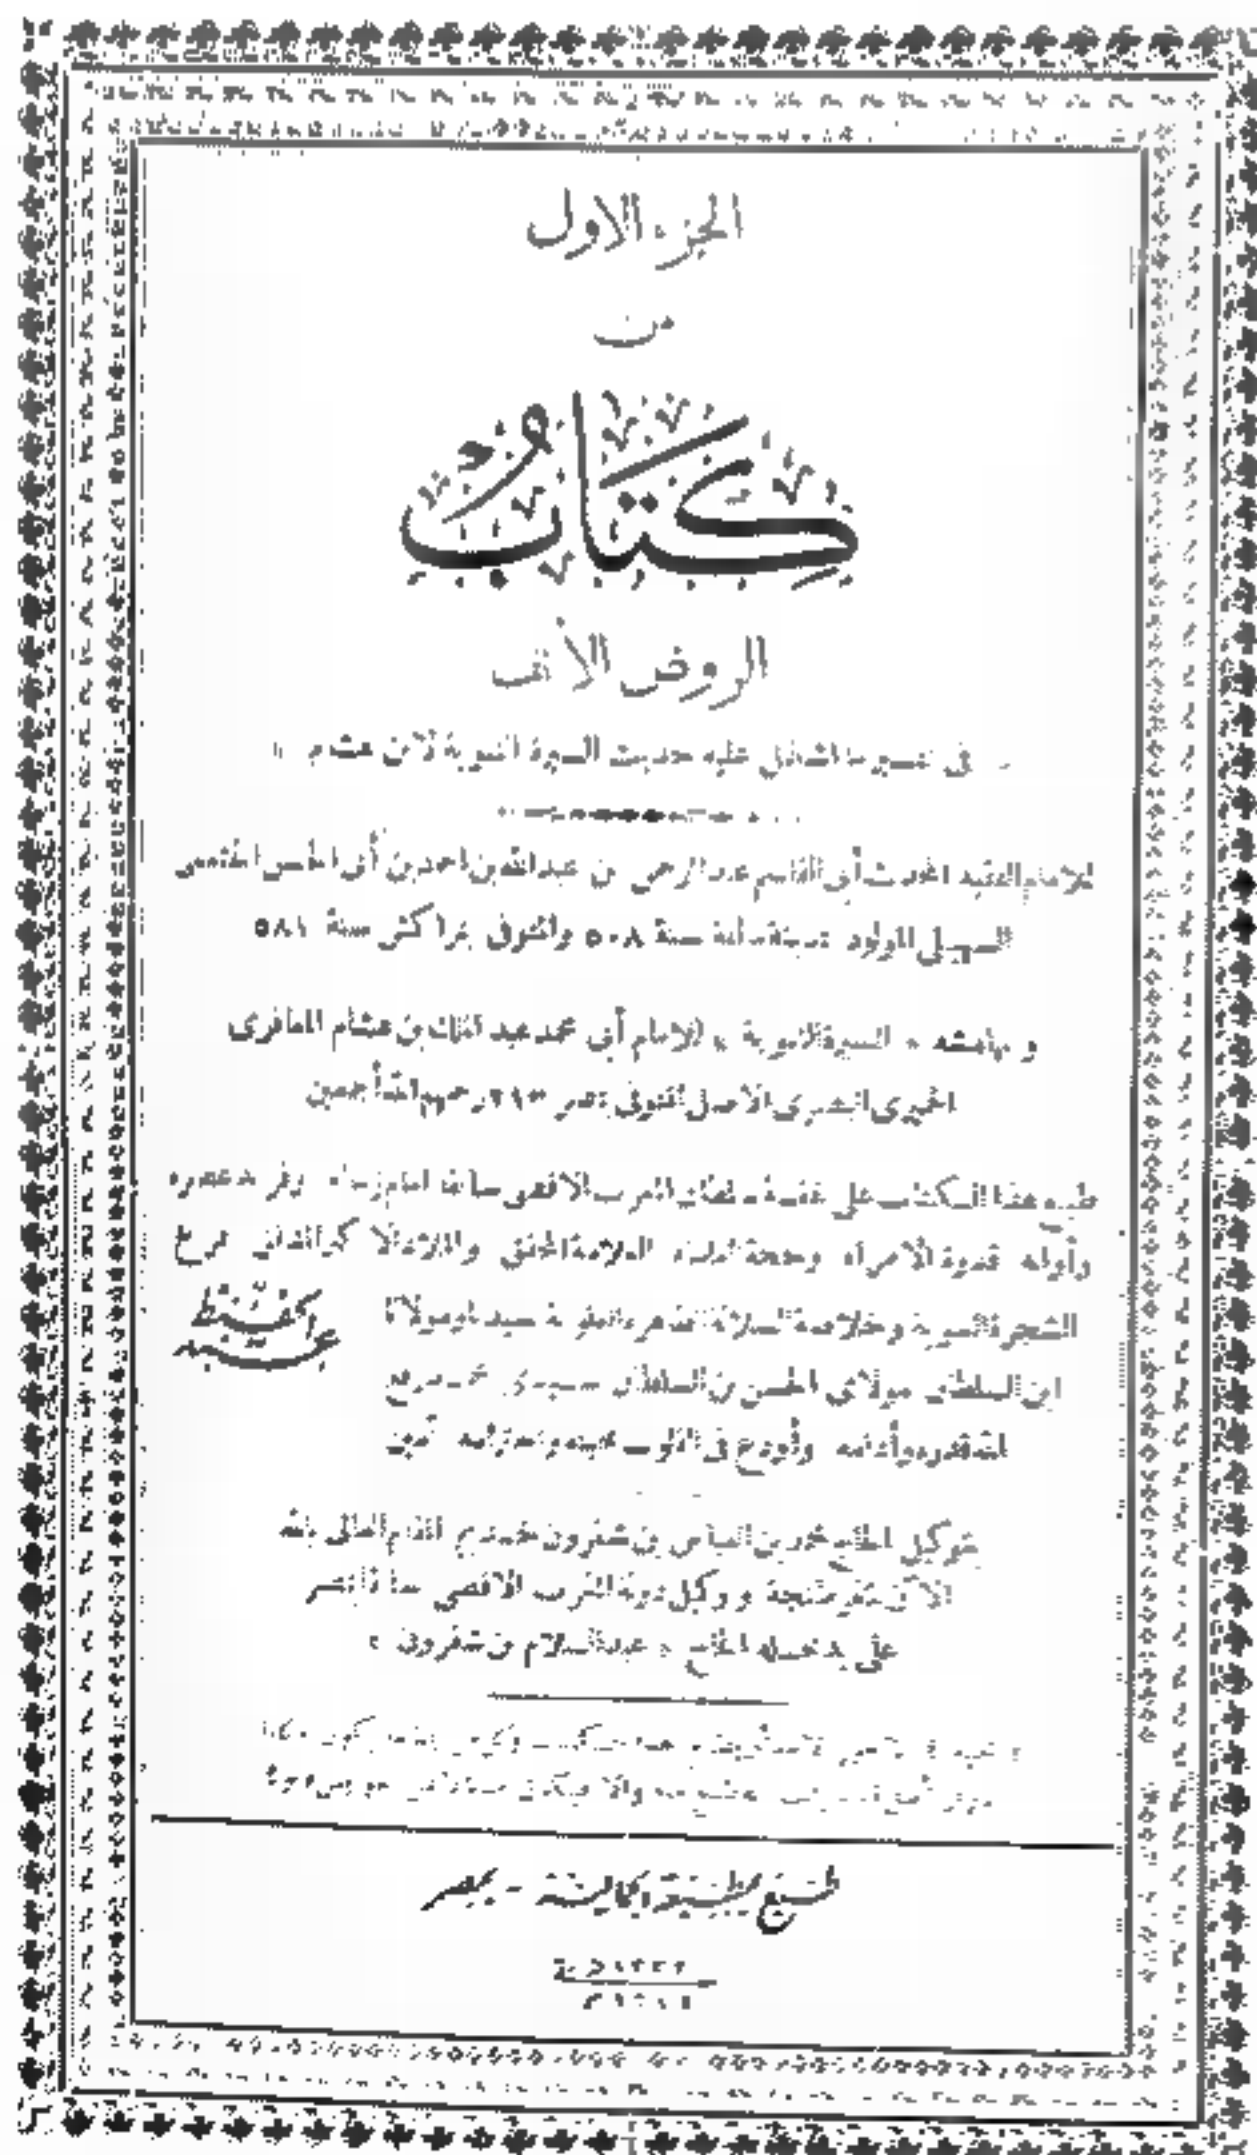 الجزء الاول
من
كِتَابُ
الروض الأنف
فى تفسير ما اشتمل عليه حديث السيرة النبوية لابن هشام
للامام الفقيه المحدث أبى القاسم عبد الرحمن بن عبدالله بن احمد بن أبى الحسن الخثعمى
السهيلى المولود بمدينة مالقة سنة ٥٠٨ والمتوفى بمراكش سنة ٥٨١
و بهامشه « السيرة النبوية » للامام أبى محمد عبد الملك بن هشام المعافرى
الحميرى البصرى الاصل المتوفى بمصر ٢١٣ رحمهم الله أجمعين
طبع هذا الكتاب على نفقة سلطان المغرب الاقصى سابقا امام زمانه وفريد عصره
وأوانه قدوة الأمراء وحجة العلماء العلامة المحقق والملاذ الاكبر المدقق فرع
الشجرة النبوية وخلاصة السلالة الطاهرة العلوية سيدنا ومولانا عبد الحفيظ
ابن السلطان مولاى الحسن بن السلطان سيدى محمد رفع
الله قدره وأدامه وأودع فى القلوب محبته واحترامه آمين
بتوكيل الحاج محمد بن العباس بن شقرون خديم المقام العالى بالله
الآن بثغر طنجة ووكيل دولة المغرب الاقصى سابقا بمصر
على يد نجله الحاج « عبد السلام بن شقرون »
طبع بمطبعة الجمالية - بمصر
١٣٣٢ هـ
١٩١٤ م